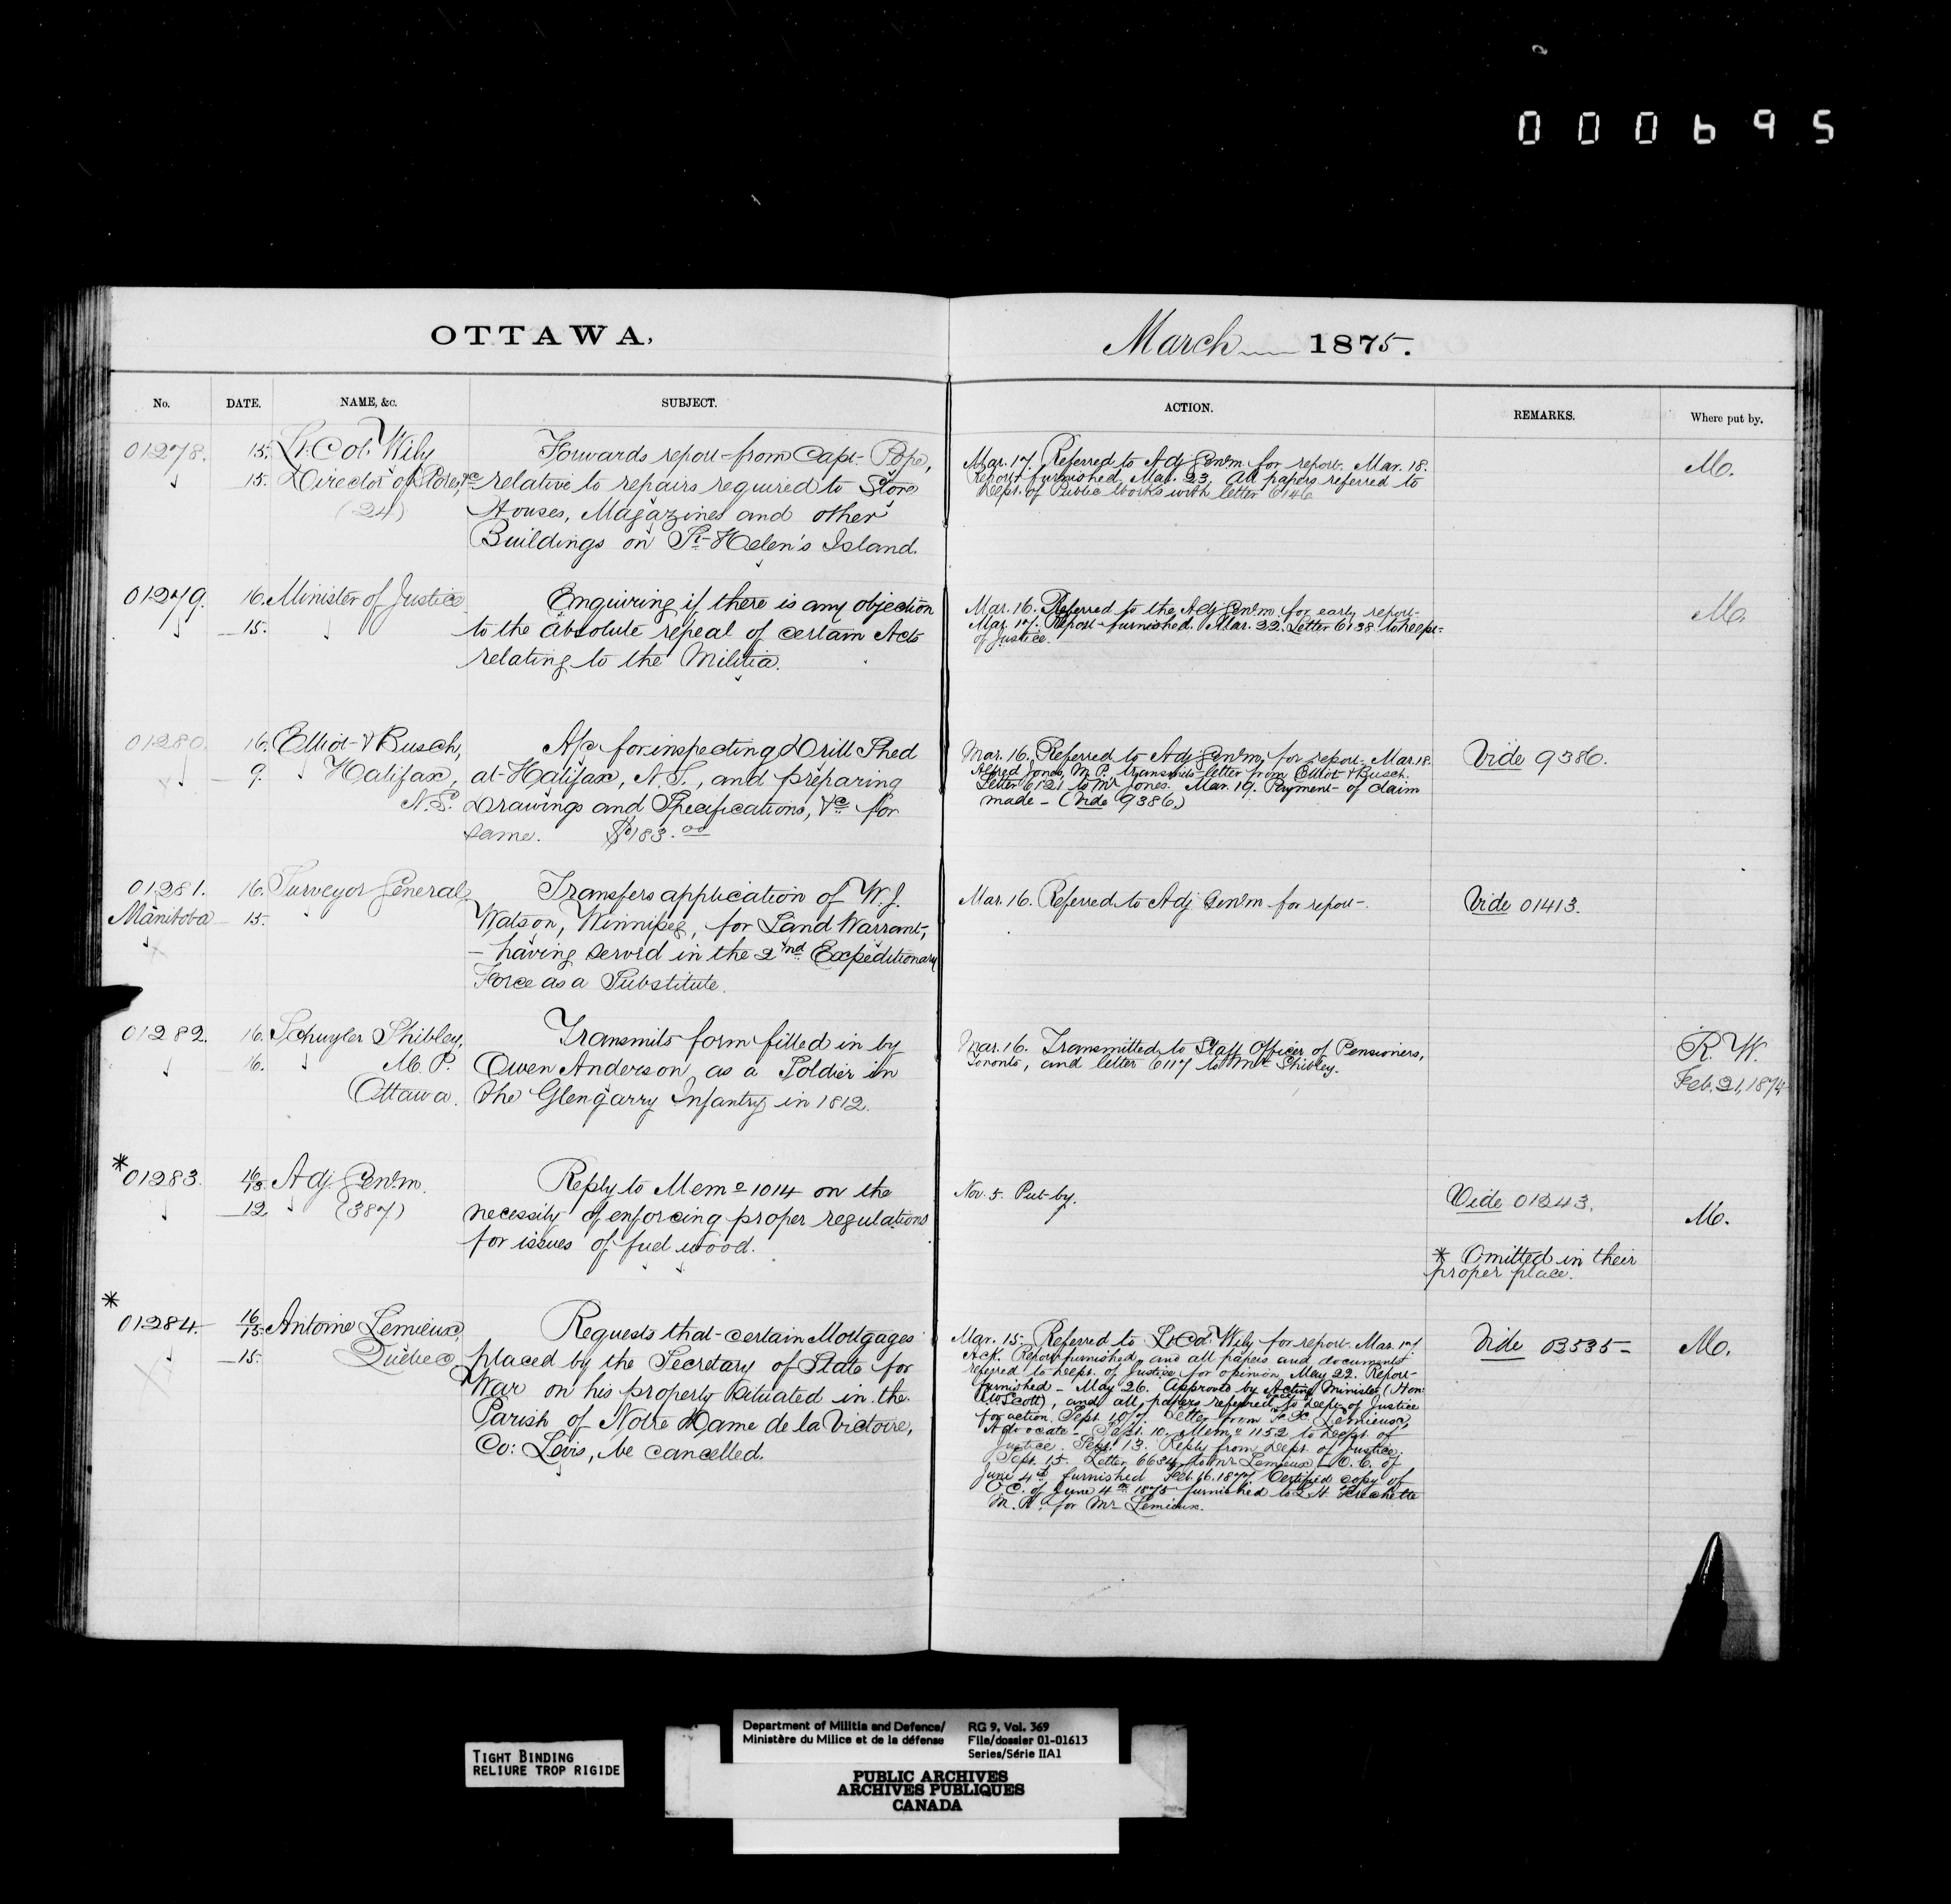 000695
OTTAWA,
March 1875.
No.
DATE.
NAME, &c.
SUBJECT.
ACTION.
REMARKS.
Where put by.
01278. 15. Lt: Col: Wily
15. Director of Stores, &c
(24)
Forwards report from Capt. Pope,
relative to repairs required to Store
Houses, Magazines and other
Buildings on St. Helen's Island.
Mar. 17. Referred to Adj Genl. m. for report. Mar. 18.
Report furnished. Mar. 23. All papers referred to
Dept. of Public Works with letter 6146
M.
01279. 16. Minister of Justice
15.
Enquiring if there is any objection
to the absolute repeal of certain Acts
relating to the Militia.
Mar. 16. Referred to the Adj Genl. m. for early report.
Mar. 17. Report furnished. Mar. 22. Letter 6138 to Dept.
of Justice.
M.
01280. 16. Elliot & Busch,
9. Halifax,
N.S.
A/c for inspecting Drill Shed
at Halifax, N.S., and preparing
Drawings and Specifications, &c for
same. $183.00
Mar. 16. Referred to Adj Genl. m. for report. Mar. 18.
Alfred Jones, M.P. transmits letter from Elliot & Busch.
Letter 6121 to Mr Jones. Mar. 19. Payment of claim
made - (Vide 9386.)
Vide 9386.
01281. 16. Surveyor General,
Manitoba 15.
Transfers application of W. J.
Watson, Winnipeg, for Land Warrant,
- having served in the 2nd Expeditionary
Force as a Substitute.
Mar. 16. Referred to Adj Genl. m. for report.
Vide 01413.
01282. 16. Schuyler Shibley,
16. M. P.
Ottawa.
Transmits form filled in by
Owen Anderson as a Soldier in
the Glengarry Infantry in 1812.
Mar. 16. Transmitted to Staff Officer of Pensioners,
Toronto, and letter 6117 to Mr. Shibley.
R. W.
Feb. 21, 1874
* 01283. 16/13 Adj. Genl. m.
12 (387)
Reply to Memo 1014 on the
necessity of enforcing proper regulations
for issues of fuel wood.
Nov. 5. Put by.
Vide 01243.
M.
* Omitted in their
proper place.
*
01284. 16/15 Antoine Lemieux,
15. Quebec,
Requests that certain Mortgages
placed by the Secretary of State for
War on his property situated in the
Parish of Notre Dame de la Victoire,
Co: Levis, be cancelled.
Mar. 15. Referred to Lt Col: Wily for report. Mar. 17.
Ack. Report furnished, and all papers and documents
referred to Dept. of Justice for opinion. May 22. Report
furnished - May 26. Approved by Acting Minister (Hon:
Scott), and all papers referred to Dept. of Justice
for action. Sept. Letter from Lemieux,
Advocate - Sept. 10. Memo 1152 to Dept. of
Justice. Sept. 13. Reply from Dept. of Justice.
Sept. 15. Letter to Mr Lemieux - O. C. of
June 4th furnished Feb. 16. 1877. Certified copy of
O.C. of June 4th 1875 furnished to L. H. Frechette
M. P. for Mr Lemieux.
Vide 03535
M.
TIGHT BINDING
RELIURE TROP RIGIDE
Department of Militia and Defence/
Ministère du Milice et de la défense
RG 9, Vol. 369
File/dossier 01-01613
Series/Série IIA1
PUBLIC ARCHIVES
ARCHIVES PUBLIQUES
CANADA